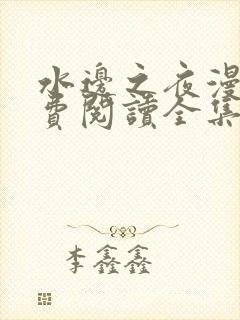 水邊之夜漫
費閱讀全集
李鑫鑫